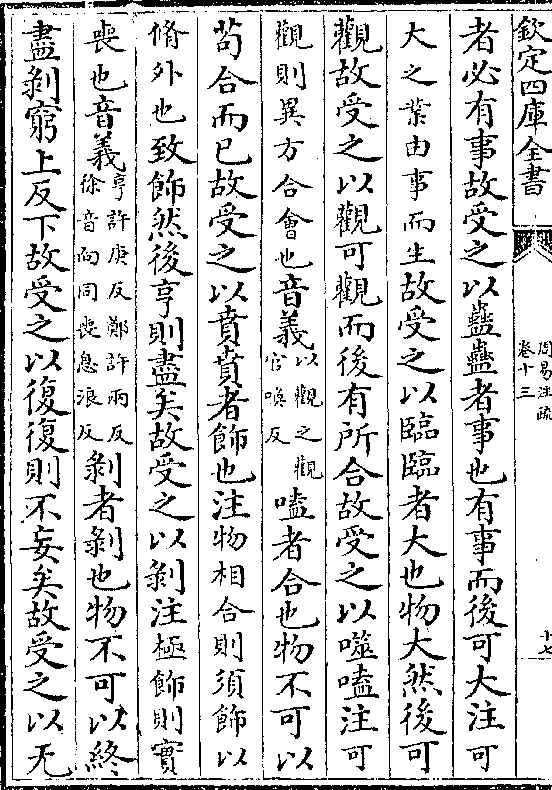 欽定四庫全書
周易注疏
卷十三
十七
者必有事故受之以蠱蠱者事也有事而後可大注可
大之業由事而生故受之以臨臨者大也物大然後可
觀故受之以觀可觀而後有所合故受之以噬嗑注可
觀則異方合會也音義以觀之觀官喚反嗑者合也物不可以
茍合而已故受之以賁賁者飾也注物相合則須飾以
脩外也致飾然後亨則盡矣故受之以剝注極飾則實
喪也音義亨許庚反鄭許兩反徐音向同喪息浪反剝者剝也物不可以終
盡剝窮上反下故受之以復復則不妄矣故受之以无